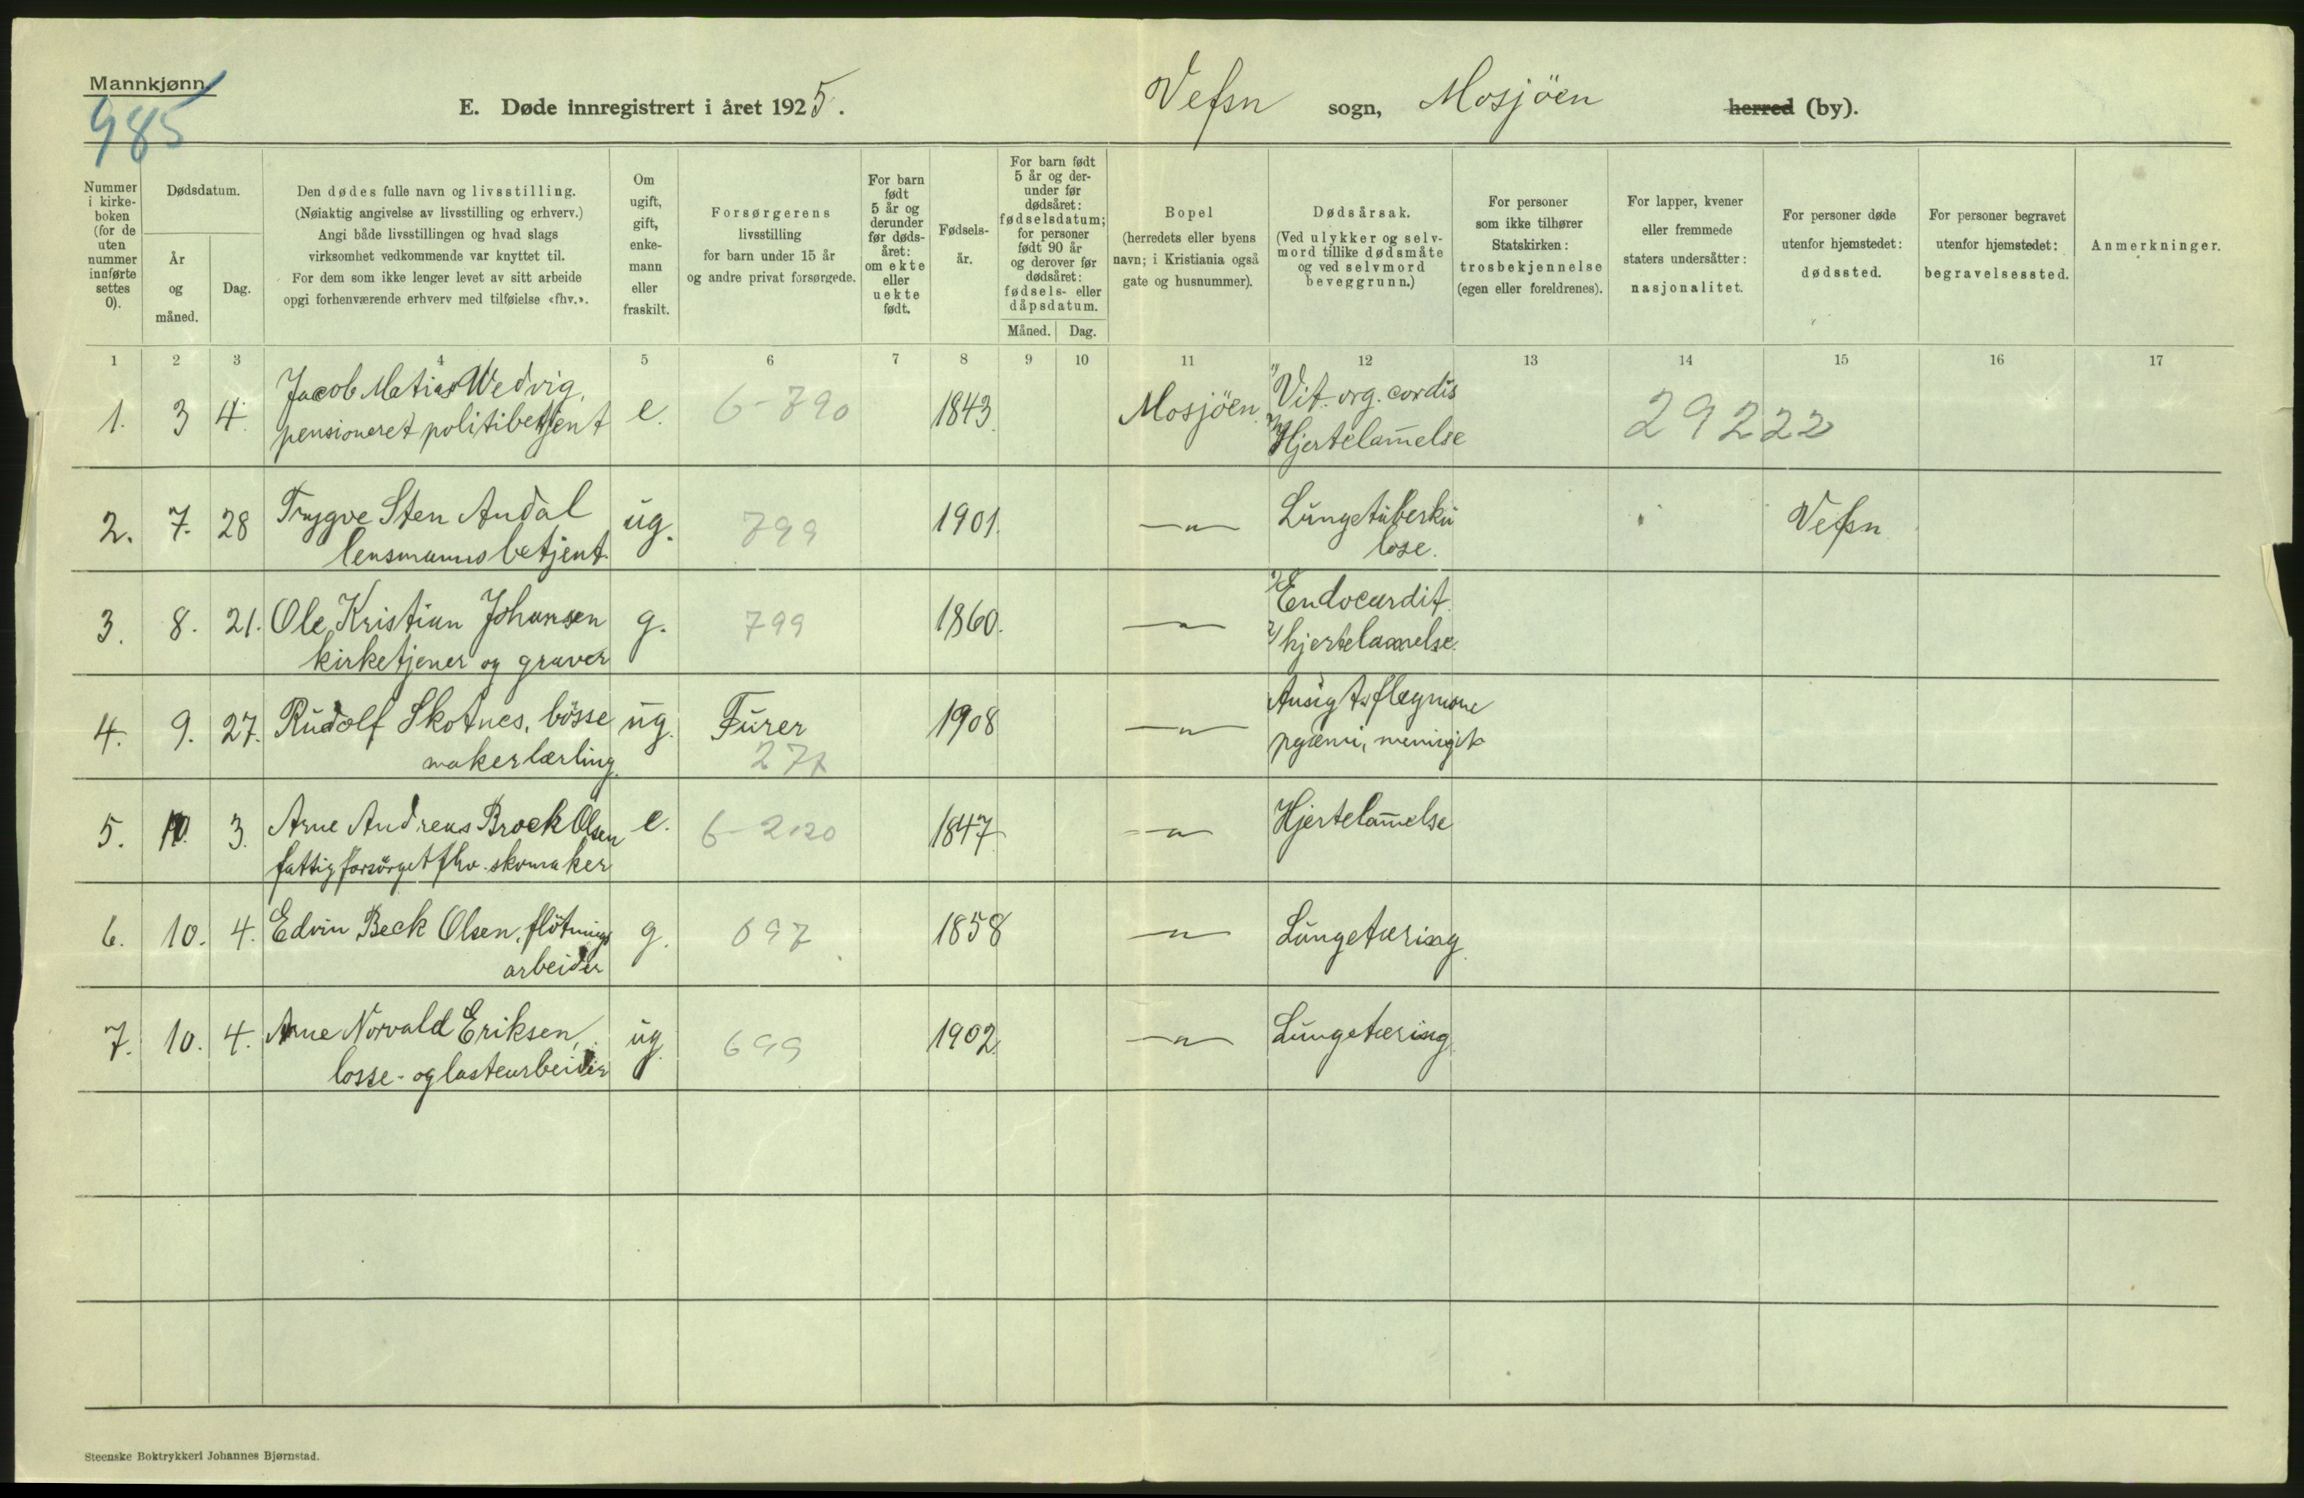 Mannkjønn.
985
E. Døde innregistrert i året 1925.
Vefsn sogn, Mosjöen herred (by).
Nummer i kirke-boken (for de uten nummer innførte settes 0).
Dødsdatum.
År og måned.
Dag.
Den dødes fulle navn og livsstilling.
(Nøiaktig angivelse av livsstilling og erhverv.)
Angi både livsstillingen og hvad slags
virksomhet vedkommende var knyttet til.
For dem som ikke lenger levet av sitt arbeide
opgi forhenværende erhverv med tilføielse «fhv.».
Om ugift, gift, enke-mann eller fraskilt.
Forsørgerens
livsstilling
for barn under 15 år
og andre privat forsørgede.
For barn født 5 år og derunder før døds-året: om ekte eller uekte født.
Fødsels-år.
For barn født 5 år og der-under før dødsåret: fødselsdatum; for personer født 90 år og derover før dødsåret: fødsels- eller dåpsdatum.
Måned. Dag.
Bopel
(herredets eller byens
navn; i Kristiania også
gate og husnummer).
Dødsårsak.
(Ved ulykker og selv-
mord tillike dødsmåte
og ved selvmord
beveggrunn.)
For personer
som ikke tilhører
Statskirken:
trosbekjennelse
(egen eller foreldrenes).
For lapper, kvener
eller fremmede
staters undersåtter:
nasjonalitet.
For personer døde
utenfor hjemstedet:
dødssted.
For personer begravet
utenfor hjemstedet:
begravelsessted.
Anmerkninger.
1 2 3 4 5 6 7 8 9 10 11 12 13 14 15 16 17
1. 3 4. Jacob Matias Wedvig, e. 6-790 1843. Mosjöen. 1) Vit. org. cordis 29222
pensioneret politibetjent 2) Hjertelam̅else
2. 7. 28 Trygve Sten Andal ug. 799 1901. —„— Lungetuberku Vefsn
lensmannsbetjent. lose.
3. 8. 21. Ole Kristian Johansen g. 799 1860. —„— 1) Endocardit.
kirketjener og graver 2) hjertelammelse.
4. 9. 27. Rudolf Skotnes, bösse ug. Furer 1908 —„— Ansigtsflegmone
makerlærling. 27 pyæmi,
5. 10. 3. Arne Andreas Brock Olsen e. 6-2120 1847 —„— Hjertelam̅else
fattigforsörget fhv. skomaker
6. 10. 4. Edvin Beck Olsen, flötnings g. 697 1858 —„— Lungetæring.
arbeider
7. 10. 4. Arne Norvald Eriksen, ug. 699 1902. —„— Lungetæring
losse- og lastearbeider
Steenske Boktrykkeri Johannes Bjørnstad.